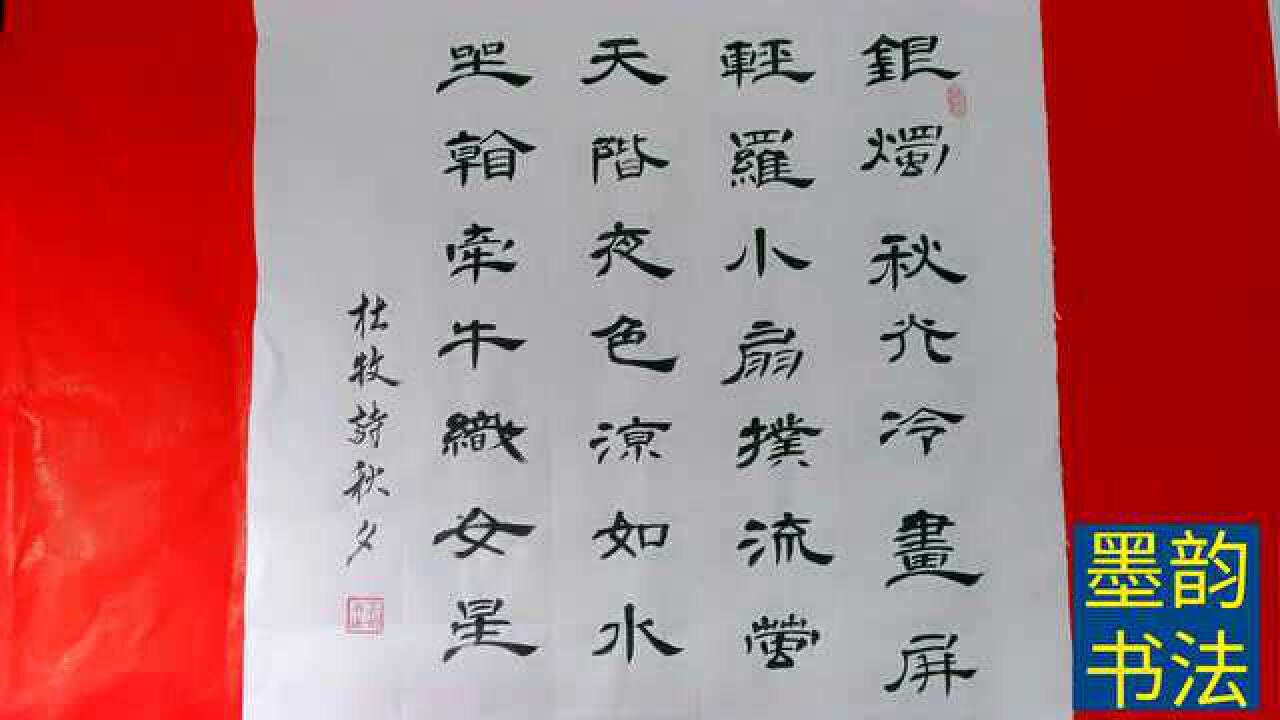 銀燭秋光冷畫屏
輕羅小扇撲流螢
天階夜色涼如水
坐看牽牛織女星
杜牧詩秋夕
墨韵
书法